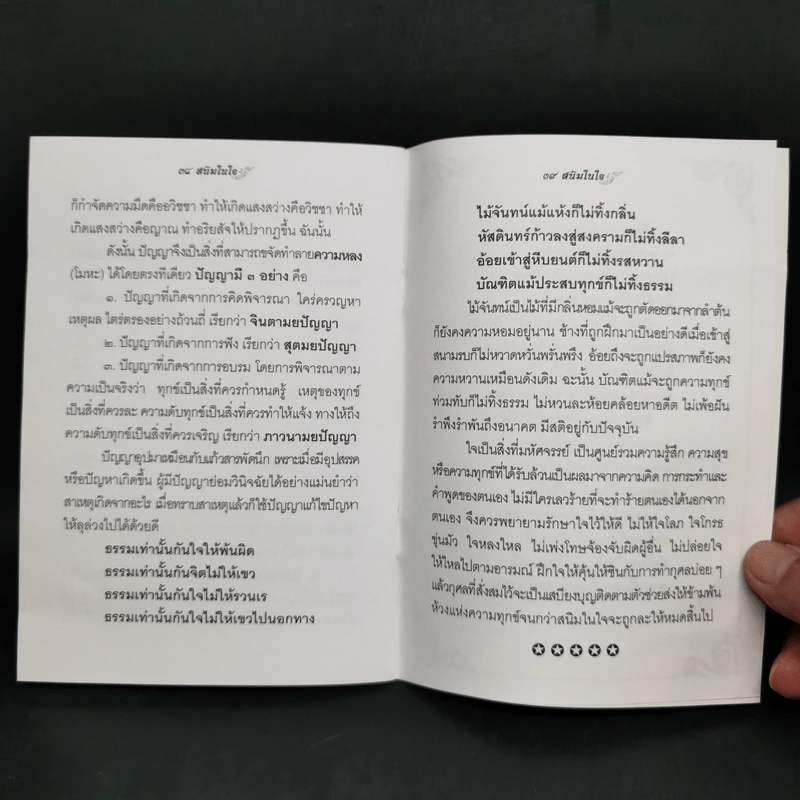 ๓๘ สนิมในใจ
ก็กำจัดความมืดคืออวิชชา ทำให้เกิดแสงสว่างคือวิชชา ทำให้
เกิดแสงสว่างคือญาณ ทำอริยสัจให้ปรากฏขึ้น ฉันนั้น
ดังนั้น ปัญญาจึงเป็นสิ่งที่สามารถขจัดทำลายความหลง
(โมหะ) ได้โดยตรงทีเดียว ปัญญามี ๓ อย่าง คือ
๑. ปัญญาที่เกิดจากการคิดพิจารณา ใคร่ครวญหา
เหตุผล ไตร่ตรองอย่างถ้วนถี่ เรียกว่า จินตามยปัญญา
๒. ปัญญาที่เกิดจากการฟัง เรียกว่า สุตมยปัญญา
๓. ปัญญาที่เกิดจากการอบรม โดยการพิจารณาตาม
ความเป็นจริงว่า ทุกข์เป็นสิ่งที่ควรกำหนดรู้ เหตุของทุกข์
เป็นสิ่งที่ควรละ ความดับทุกข์เป็นสิ่งที่ควรทำให้แจ้ง ทางให้ถึง
ความดับทุกข์เป็นสิ่งที่ควรเจริญ เรียกว่า ภาวนามยปัญญา
ปัญญาอุปมาเหมือนกับแก้วสารพัดนึก เพราะเมื่อมีอุปสรรค
หรือปัญหาเกิดขึ้น ผู้มีปัญญาย่อมวินิจฉัยได้อย่างแม่นยำว่า
สาเหตุเกิดจากอะไร เมื่อทราบสาเหตุแล้วก็ใช้ปัญญาแก้ไขปัญหา
ให้ลุล่วงไปได้ด้วยดี
ธรรมเท่านั้นกันใจให้พ้นผิด
ธรรมเท่านั้นกันจิตไม่ให้เขว
ธรรมเท่านั้นกันใจไม่ให้รวนเร
ธรรมเท่านั้นกันใจไม่ให้เขวไปนอกทาง
๓๙ สนิมในใจ
ไม้จันทน์แม้แห้งก็ไม่ทิ้งกลิ่น
หัสดินทร์ก้าวลงสู่สงครามก็ไม่ทิ้งลีลา
อ้อยเข้าสู่หีบยนต์ก็ไม่ทิ้งรสหวาน
บัณฑิตแม้ประสบทุกข์ก็ไม่ทิ้งธรรม
ไม้จันทน์เป็นไม้ที่มีกลิ่นหอมแม้จะถูกตัดออกมาจากลำต้น
ก็ยังคงความหอมอยู่นาน ช้างที่ถูกฝึกมาเป็นอย่างดีเมื่อเข้าสู่
สนามรบก็ไม่หวาดหวั่นพรั่นพรึง อ้อยถึงจะถูกแปรสภาพก็ยังคง
ความหวานเหมือนดังเดิม ฉะนั้น บัณฑิตแม้จะถูกความทุกข์
ท่วมทับก็ไม่ทิ้งธรรม ไม่หวนละห้อยคล้อยหาอดีต ไม่เพ้อฝัน
รำพึงรำพันถึงอนาคต มีสติอยู่กับปัจจุบัน
ใจเป็นสิ่งที่มหัศจรรย์ เป็นศูนย์รวมความรู้สึก ความสุข
หรือความทุกข์ที่ได้รับล้วนเป็นผลมาจากความคิด การกระทำและ
คำพูดของตนเอง ไม่มีใครเลวร้ายที่จะทำร้ายตนเองได้นอกจาก
ตนเอง จึงควรพยายามรักษาใจไว้ให้ดี ไม่ให้ใจโลภ ใจโกรธ
ขุ่นมัว ใจหลงใหล ไม่เพ่งโทษจ้องจับผิดผู้อื่น ไม่ปล่อยใจ
ให้ไหลไปตามอารมณ์ ฝึกใจให้คุ้นให้ชินกับการทำกุศลบ่อย ๆ
แล้วกุศลที่สั่งสมไว้จะเป็นเสบียงบุญติดตามตัวช่วยส่งให้ข้ามพ้น
ห้วงแห่งความทุกข์จนกว่าสนิมในใจจะถูกละให้หมดสิ้นไป